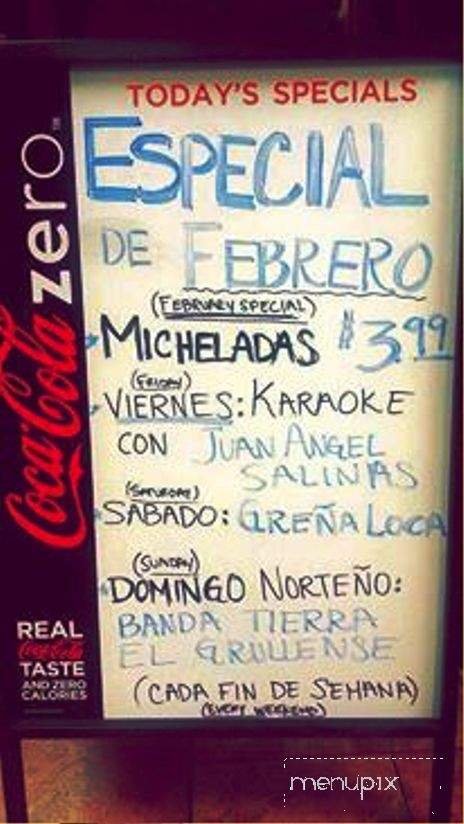 TODAY'S SPECIALS
ESPECIAL
DE FEBRERO
(FEBRUARY SPECIAL)
MICHELADAS $3.99
(FRIDAY)
VIERNES: KARAOKE
CON JUAN ANGEL
SALINAS
(SATURDAY)
SABADO: GREÑA LOCA
(SUNDAY)
DOMINGO NORTEÑO:
BANDA TIERRA
EL GRULLENSE
(CADA FIN DE SEMANA)
(EVERY WEEKEND)
Coca-Cola zero
REAL
Coca-Cola
TASTE
AND ZERO
CALORIES
menupix